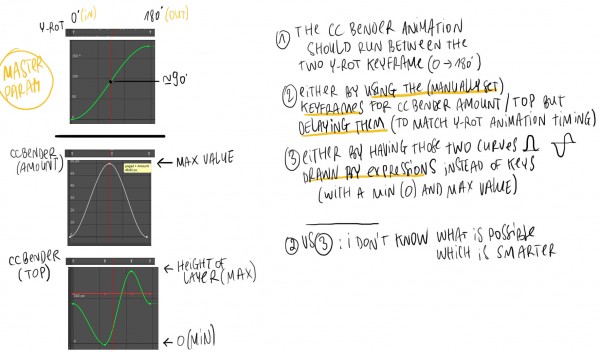 Y-ROT 0° (IN) 180° (OUT)
MASTER
PARAM
≈90°
CC BENDER
(AMOUNT)
← MAX VALUE
CC BENDER
(TOP)
← HEIGHT OF
LAYER (MAX)
← 0 (MIN)
1 THE CC BENDER ANIMATION
SHOULD RUN BETWEEN THE
TWO Y-ROT KEYFRAME (0 → 180°)
2 EITHER BY USING THE (MANUALLY SET)
KEYFRAMES FOR CC BENDER AMOUNT/TOP BUT
DELAYING THEM (TO MATCH Y-ROT ANIMATION TIMING)
3 EITHER BY HAVING THOSE TWO CURVES
DRAWN BY EXPRESSIONS INSTEAD OF KEYS
(WITH A MIN (0) AND MAX VALUE)
2 VS 3 : I DON'T KNOW WHAT IS POSSIBLE
WHICH IS SMARTER